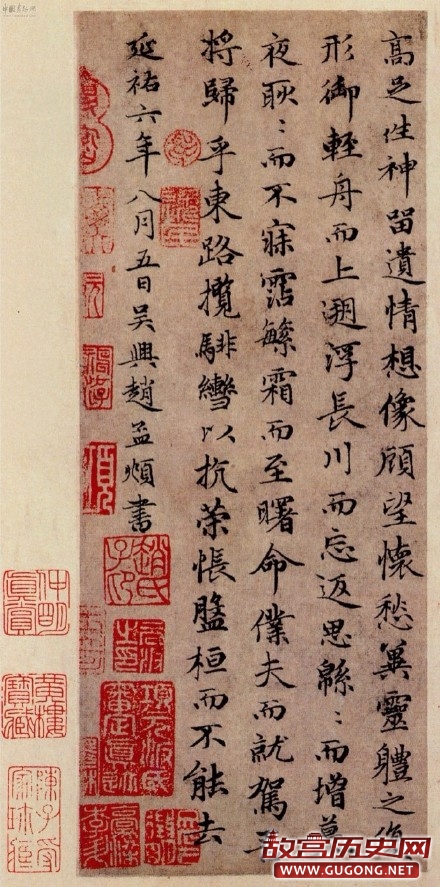 髙足往神留遺情想像顧望懷愁兾靈軆之復
形御輕舟而上遡浮長川而忘返思緜〻而增慕
夜耿〻而不寐霑繁霜而至曙命僕夫而就駕吾
將歸乎東路攬騑轡以抗策悵盤桓而不能去
延祐六年八月五日吳興趙孟頫書
趙氏
趙氏子昂
項元汴氏審定真跡
故宫历史网
WWW.GUGONG.NET